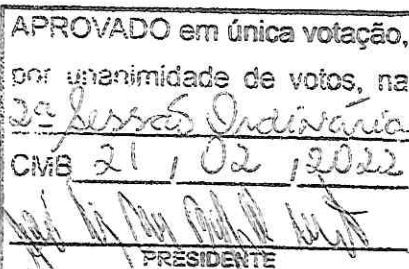 APROVADO em única votação,
por unanimidade de votos, na
2ª Sessão Ordinária
CMB 21 / 02 / 2022
PRESIDENTE